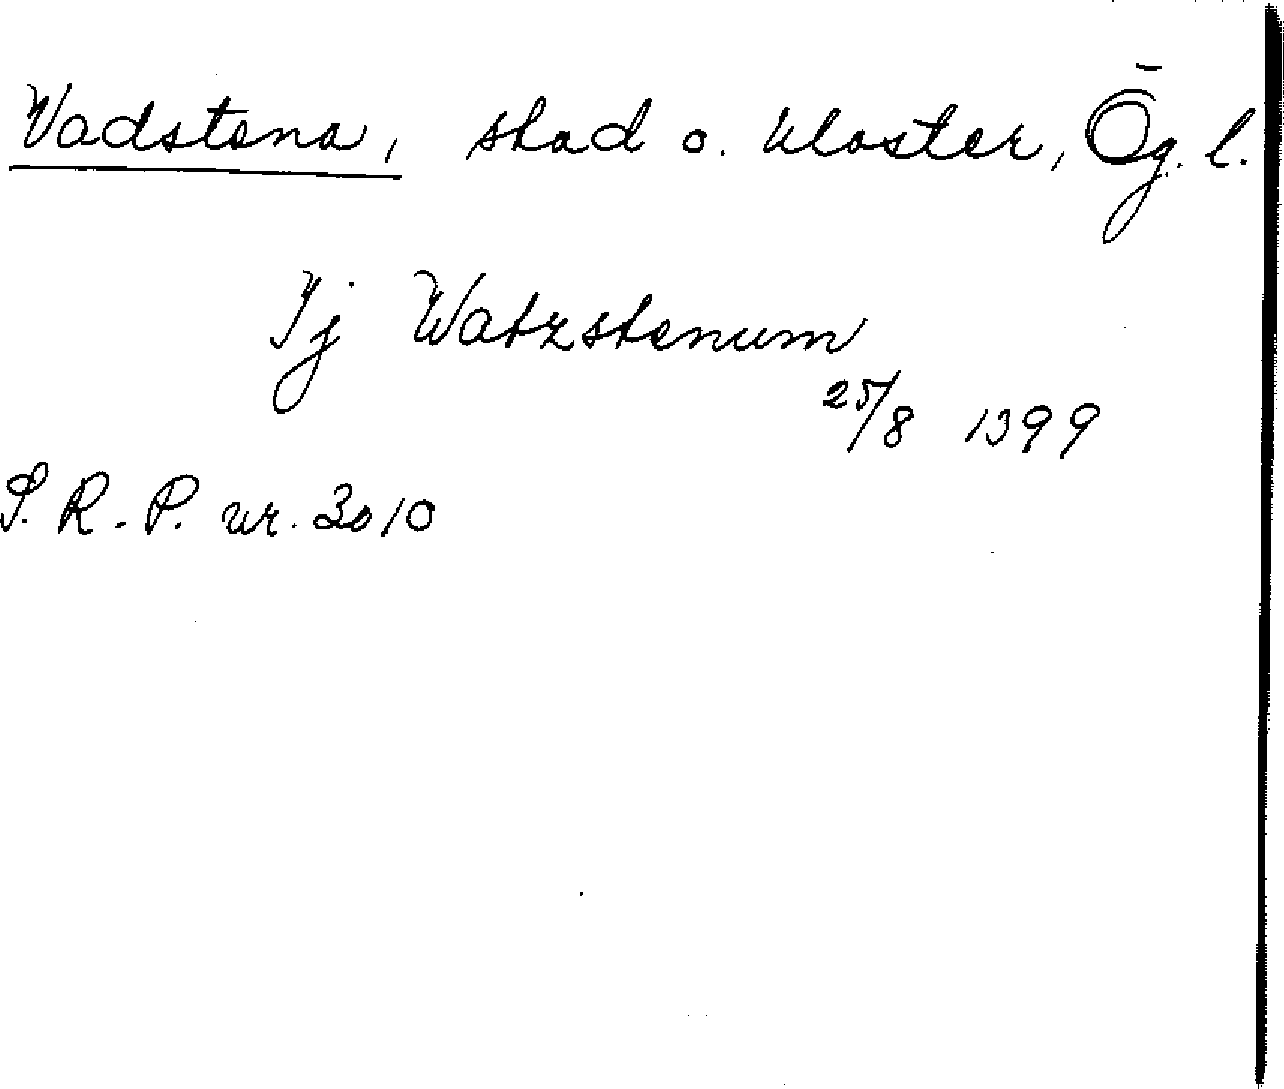 Vadstena, stad o. kloster, Ög. l.
Ij Watzstenum
25/8 1399
S. R. P. nr. 3010